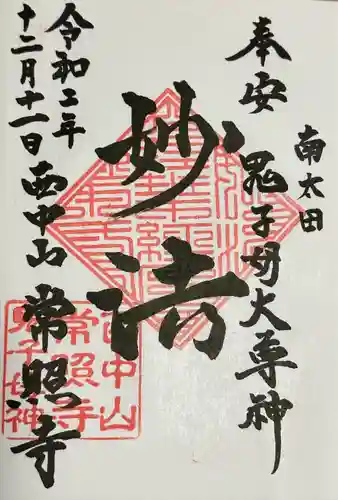 奉安 鬼子母大尊神
南太田
妙法
令和二年
十二月十一日 西中山 常照寺
西中山
常照寺
鬼子母神